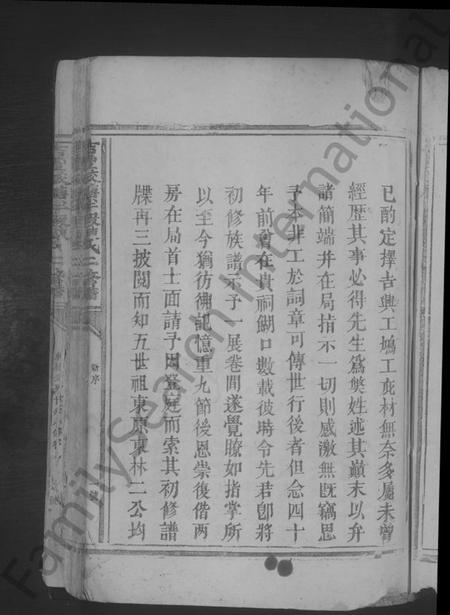 已酌定擇吉興工鳩工庀材無奈多屬未曾
經歷其事必得先生爲樊姓述其巔末以弁
諸簡端并在局指不一切則感激無旣竊思
予本非工於詞章可傳世行後者但念四十
年前曾在貴祠餬口數載彼時令先君卽將
初修族譜示予一展卷間遂覺瞭如指掌所
以至今猶彷彿記憶重九節後恩崇復偕兩
房在局首士面請予因登庭而索其初修譜
牒再三披閱而知五世祖東廩東林二公均
序
FamilySearch International